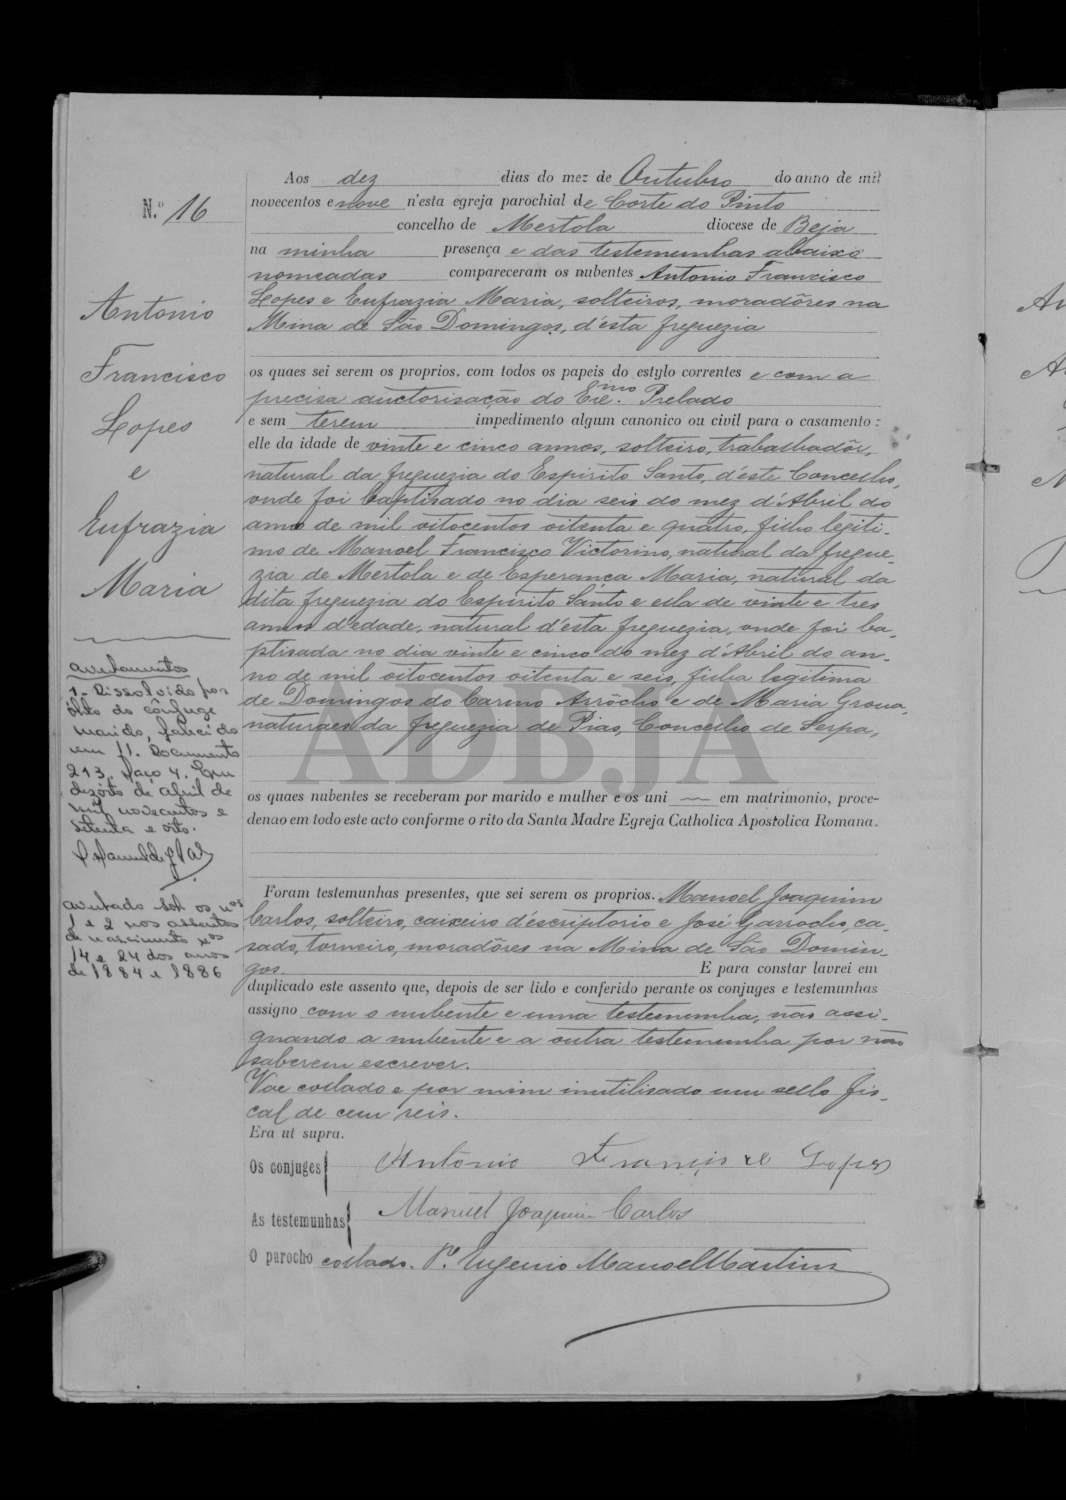 N.º 16
Antonio
Francisco
Lopes
e
Eufrazia
Maria
Averbamentos
1- Dissolvido por
óbito do cônjuge
marido, falecido
em Documento
213, maço 4. Em
dezoito de abril de
mil novecentos e
setenta e oito.
Averbado sob os nºs
1 e 2 nos assentos
de nascimento nºs
14 e 24 dos anos
de 1884 e 1886
Aos dez dias do mez de Outubro do anno de mil
novecentos e nove n'esta egreja parochial de Corte do Pinto
concelho de Mertola diocese de Beja
na minha presença e das testemunhas abaixo
nomeadas compareceram os nubentes Antonio Francisco
Lopes e Eufrazia Maria, solteiros, moradôres na
Mina de São Domingos, d'esta freguezia
os quaes sei serem os proprios, com todos os papeis do estylo correntes e com a
precisa auctorisação do Exe.mo Prelado
e sem terem impedimento algum canonico ou civil para o casamento:
elle da idade de vinte e cinco annos, solteiro, trabalhadôr,
natural da freguezia do Espirito Santo, d'este Concelho,
onde foi baptisado no dia seis do mez d'Abril do
anno de mil oitocentos oitenta e quatro, filho legiti-
mo de Manoel Francisco Victorino, natural da fregue-
zia de Mertola e de Esperança Maria, natural da
dita freguezia do Espirito Santo e ella de vinte e tres
annos d'edade, natural d'esta freguezia, onde foi ba-
ptisada no dia vinte e cinco do mez d'Abril do an-
no de mil oitocentos oitenta e seis, filha legitima
de Domingos do Carmo Arrôcho e de Maria Groua,
naturaes da freguezia de Pias, Concelho de Serpa,
ADBJA
os quaes nubentes se receberam por marido e mulher e os uni em matrimonio, proce-
denao em todo este acto conforme o rito da Santa Madre Egreja Catholica Apostolica Romana.
Foram testemunhas presentes, que sei serem os proprios. Manoel Joaquim
Carlos, solteiro, caixeiro d'escriptorio e José Garrocho, ca-
sado, torneiro, moradôres na Mina de São Domin-
gos. E para constar lavrei em
duplicado este assento que, depois de ser lido e conferido perante os conjuges e testemunhas
assigno com o nubente e uma testemunha, não assi-
gnando a nubente e a outra testemunha por não
saberem escrever.
Vae collado e por mim inutilisado um sello fis-
cal de cem reis.
Era ut supra.
Os conjuges Antonio Francisco Lopes
As testemunhas Manuel Joaquim Carlos
O parocho collado. P.e Eugenio Manoel Martins